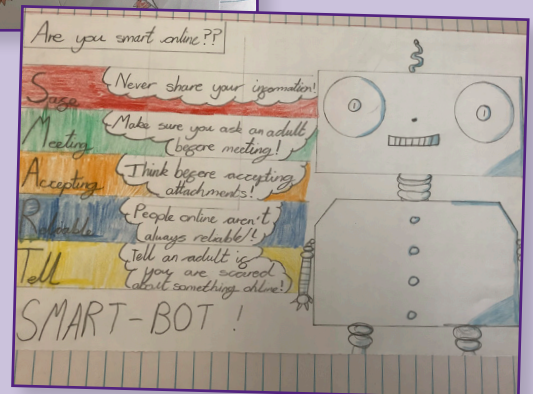 Are you smart online??
Safe
Never share your information!
Meeting
Make sure you ask an adult
before meeting!
Accepting
Think before accepting
attachments!
Reliable
People online aren't
always reliable!!
Tell
Tell an adult if
you are scared
about something online!
SMART-BOT !